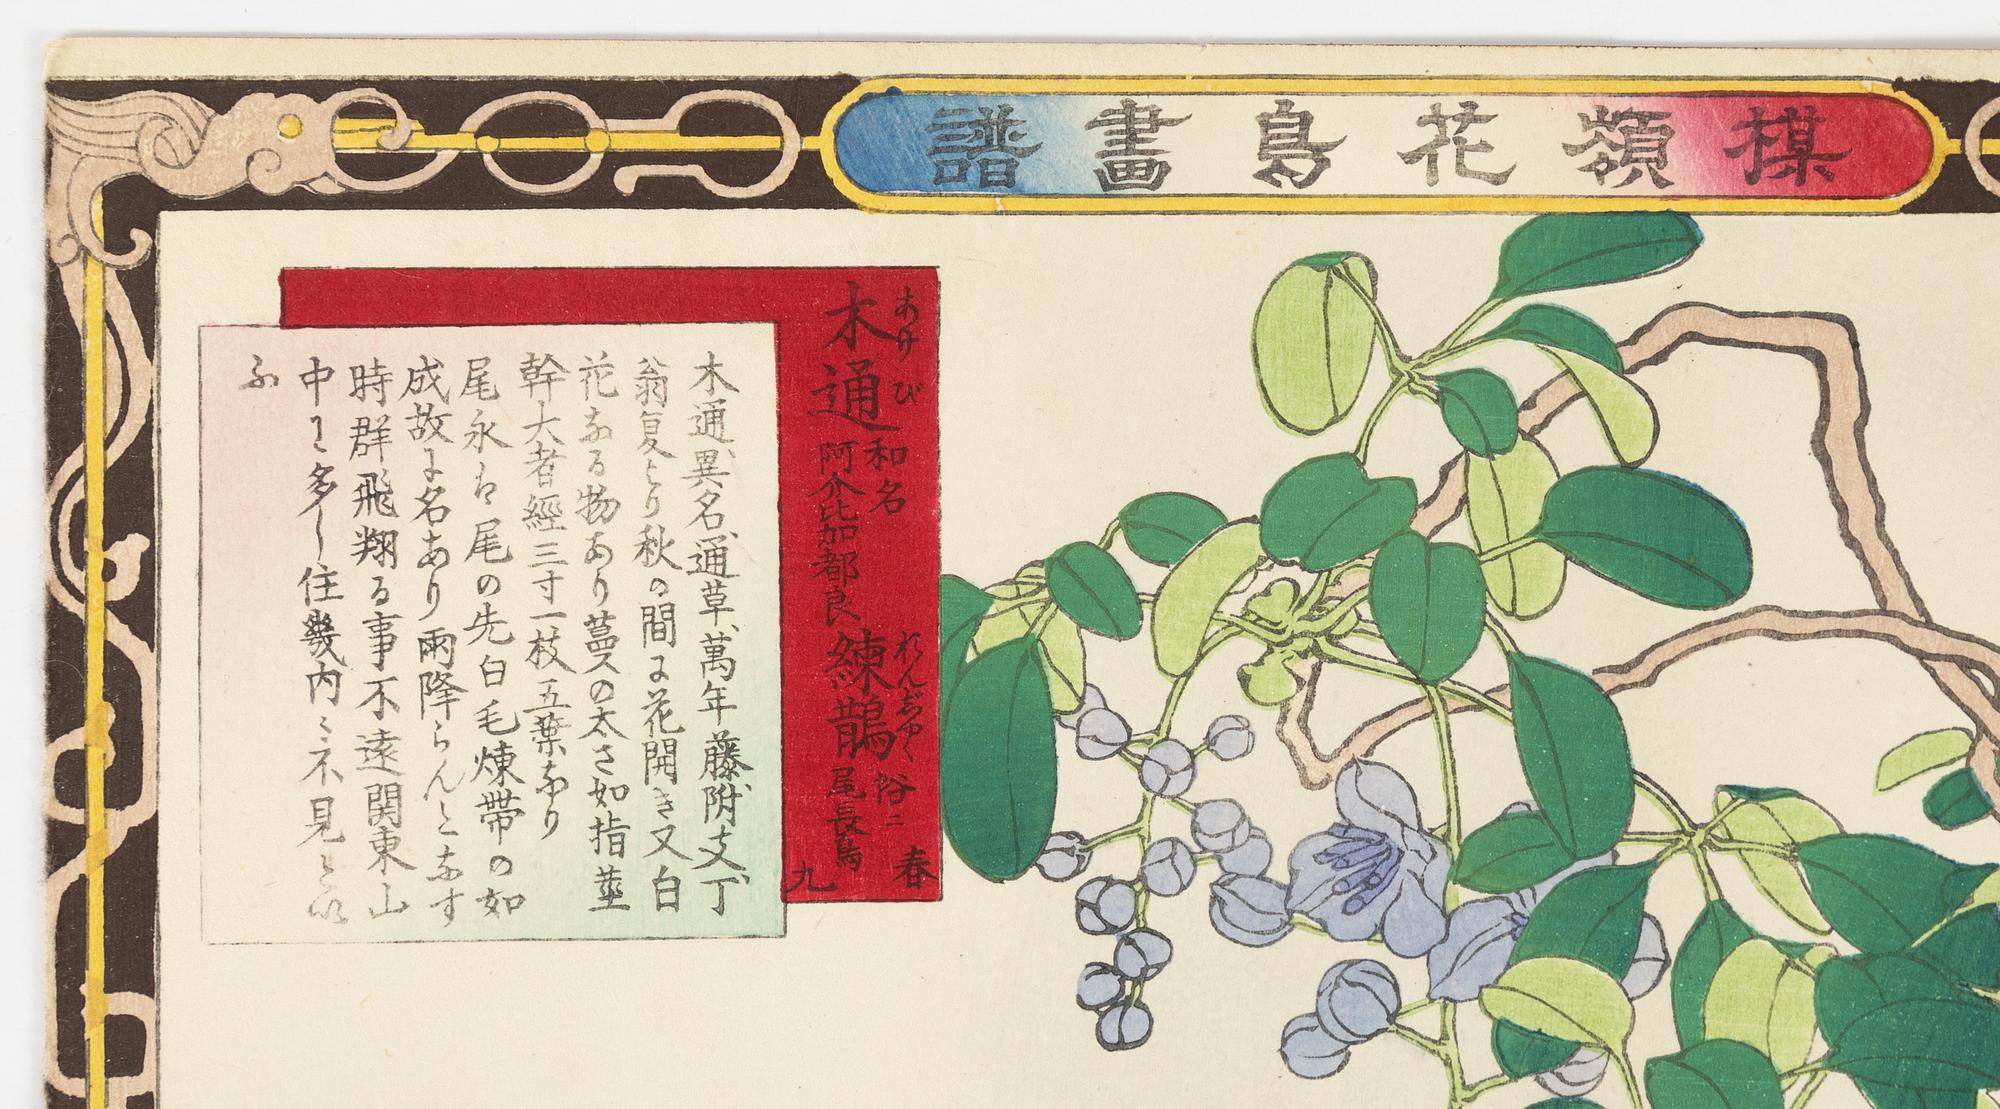 楳嶺花鳥畫譜
あけび
木通
和名
阿介比加都良
れんぢやく
練鵲
俗ニ
尾長鳥
春
九
木通異名通草萬年藤附支丁
翁夏より秋の間に花開き又白
花なる物あり蔓の太さ如指莖
幹大者經三寸一枝五葉なり
尾永は尾の先白毛煉帶の如
成故に名あり雨降らんとなす
時群飛翔る事不遠関東山
中に多し住幾内ニ不見と以
ふ